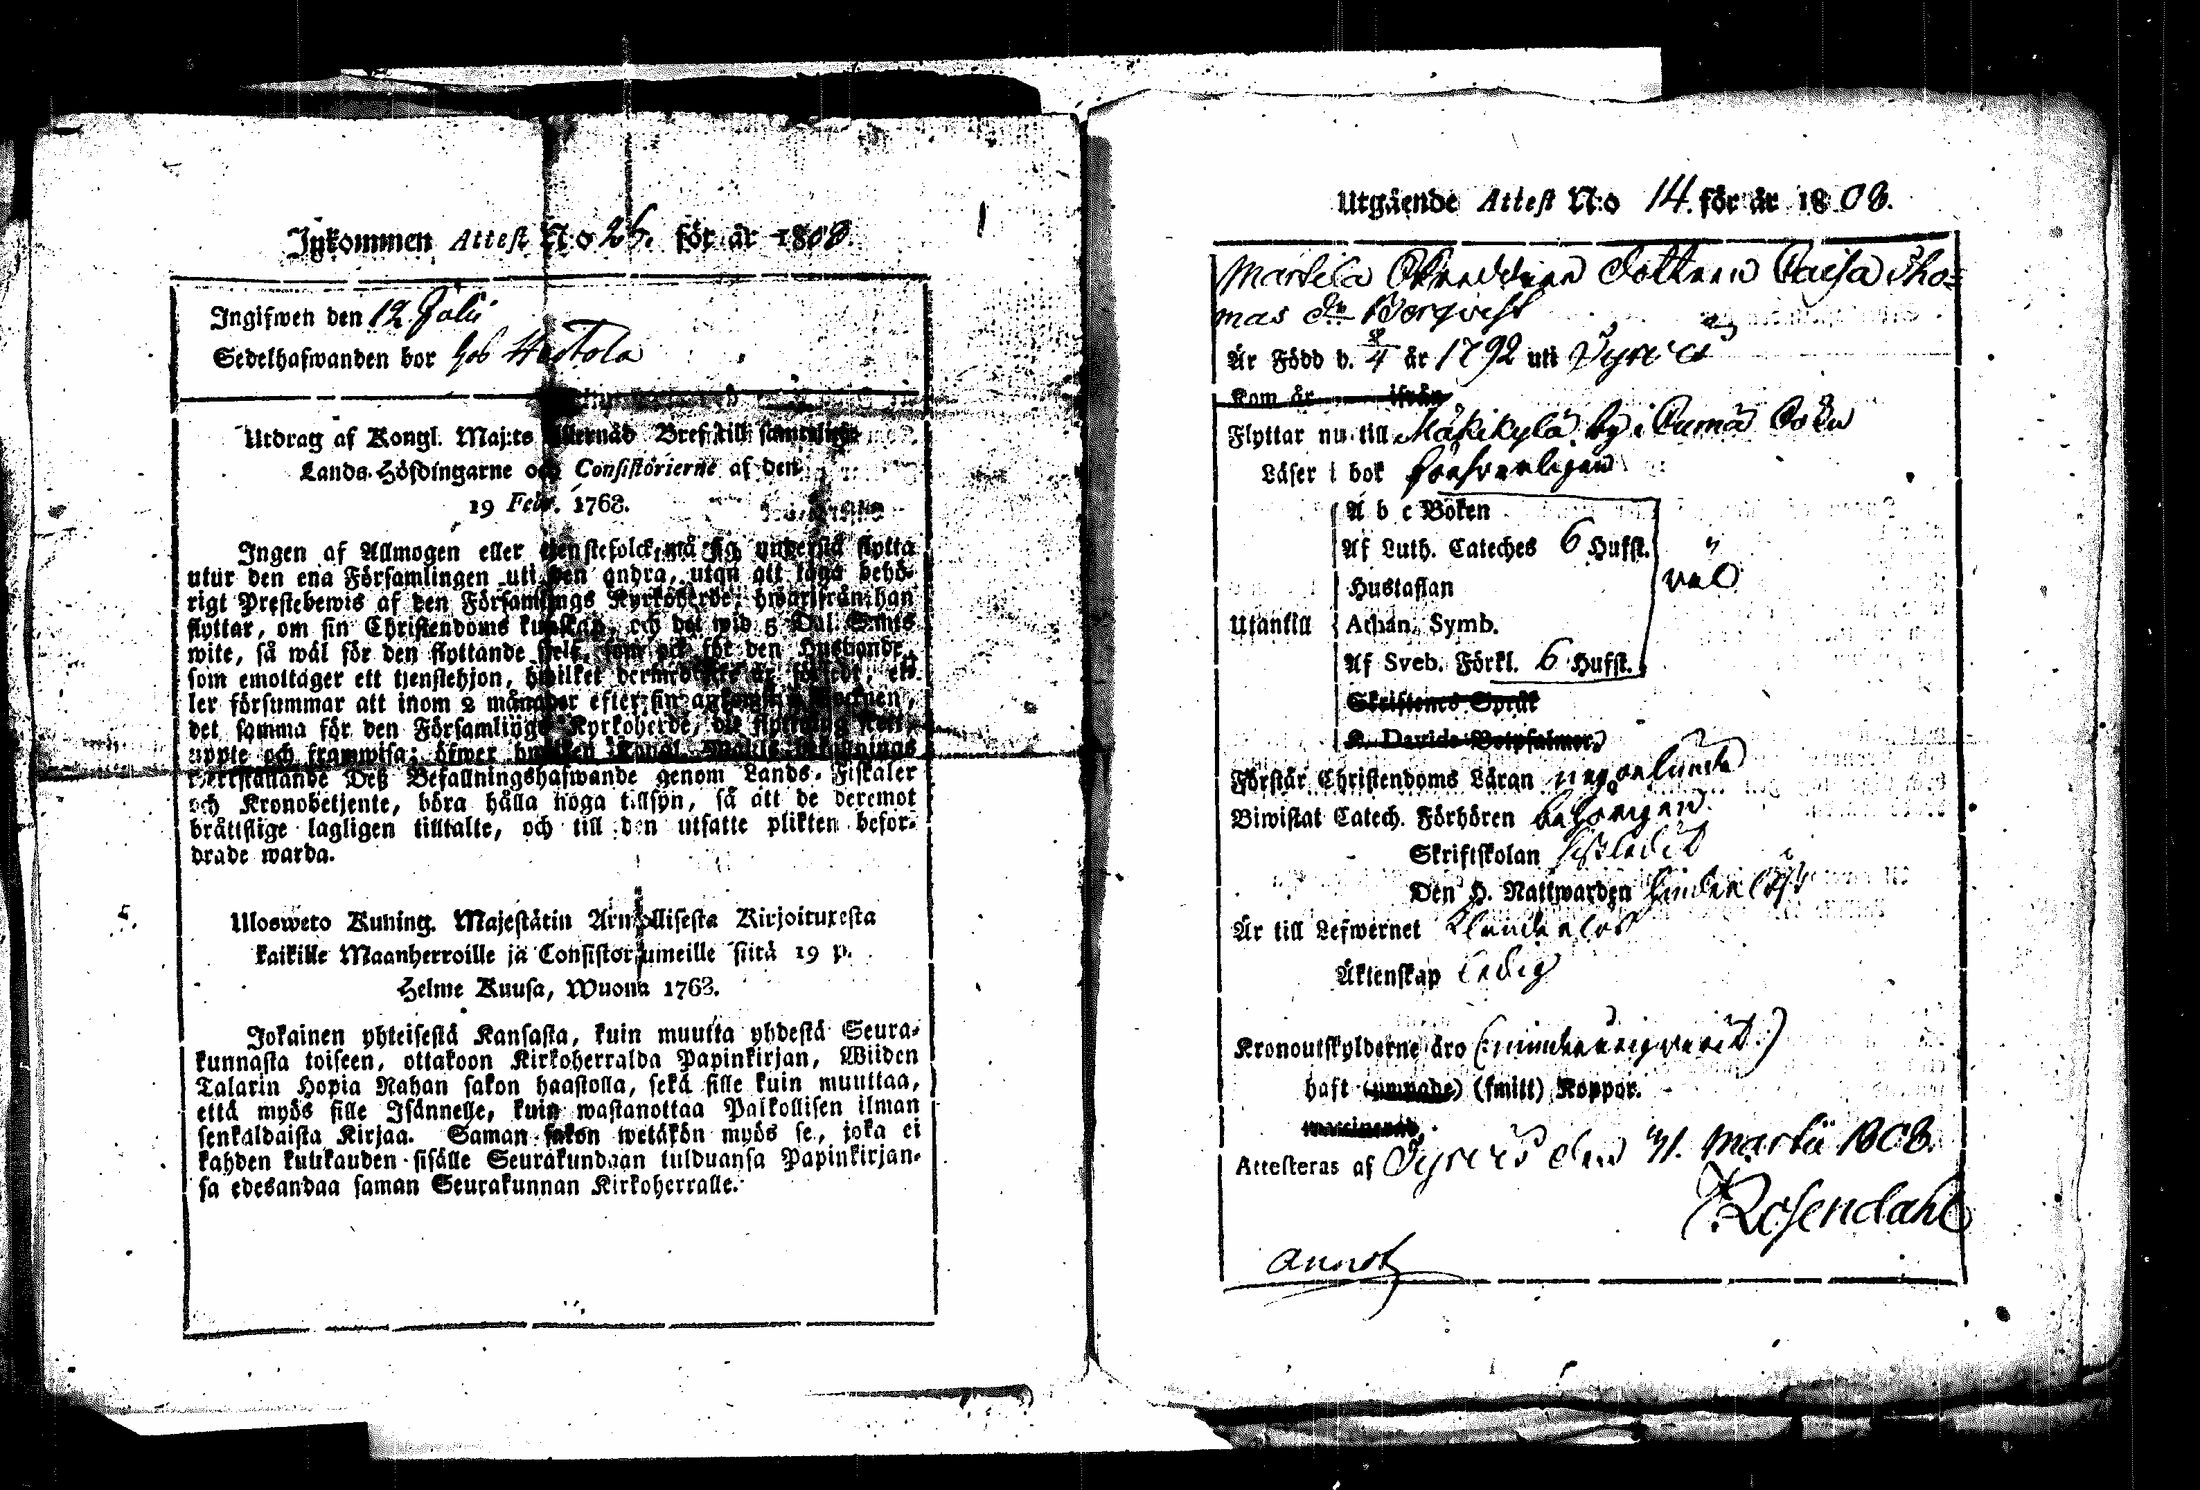 Inkommen Attest N:o 26. för år 1808.
Ingifwen den 12 Julii
Sedelhafwanden bor hos
Utdrag af Kongl. Maj:ts Bref till samtelige
Lands-Höfdingarne och Consistorierne af den
19 Febr. 1763.
Ingen af Allmogen eller tjenstefolck, må sig understå flytta
utur den ena Församlingen uti den andra, utan att taga behö-
rigt Prestebewis af den Församlings Kyrkoherde, hwarifrån han
flyttar, om sin Christendoms kunskap, och det wid 5 Dal. S:mts
wite, så wäl för den flyttande sjelf, som ock för den Husbonde,
som emottager ett tjenstehjon, hwilket dermed icke är försedt, el-
ler försummar att inom 2 månader efter sin ankomst i Socknen,
det samma för den Församlings Kyrkoherde, dit flyttning skett,
uppte och framwisa; öfwer hwilken Kongl. Maj:ts
werkställande Deß Befallningshafwande genom Lands-Fiskaler
och Kronobetjente, böra hålla noga tillsyn, så att de deremot
bråttslige lagligen tilltalte, och till den utsatte plikten befor-
drade warda.
Ulosweto Kuning. Majestätin Armollisesta Kirjoituxesta
kaikille Maanherroille ja Consistoriumeille siitä 19 p.
Helme Kuusa, Wuona 1763.
Jokainen yhteisestä Kansasta, kuin muutta yhdestä Seura-
kunnasta toiseen, ottakoon Kirkoherralda Papinkirjan, Wiiden
Talarin Hopia Rahan sakon haastolla, sekä sille kuin muuttaa,
että myös sille Isännelle, kuin wastanottaa Palkollisen ilman
senkaldaista Kirjaa. Saman sakon wetäkön myös se, joka ei
kahden kuukauden sisälle Seurakundaan tulduansa Papinkirjan-
sa edesandaa saman Seurakunnan Kirkoherralle.
Utgående Attest N:o 14. för år 1808.
Martila dottren Caisa Tho=
mas dr Bergqvist
Är Född d. 8/4 år 1792 uti Tyrvis
Kom år ifrån
Flyttar nu till Mäkikylä by i Cumo Sokn
Läser i bok försvarligen
A b c Boken
Af Luth. Cateches 6 Hufst.
Hustaflan
väl
Utantill
Athan. Symb.
Af Sveb. Förkl. 6 Hufst.
Skriftenes Språk
K. Davids Botpsalmer.
Förstår Christendoms Läran någorlunda
Biwistat Catech. Förhören behörigen
Skriftskolan
Den H. Nattwarden
Är till Lefwernet klanderlös
Äktenskap ledig
Kronoutskylderne äro (:minderårig varit:)
haft (ympade) (smitt) Koppor.
vaccinerad
Attesteras af Tyrvis den 31. Martii 1808.
Rosendahl
annot